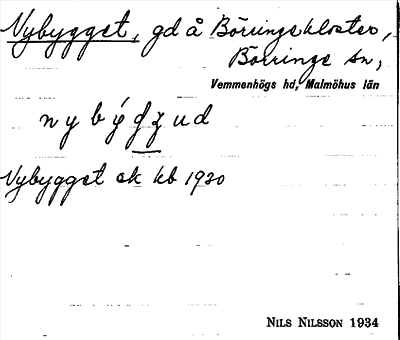 Nybygget, gd å Börringekloster,
Börringe sn,
Vemmenhögs hd, Malmöhus län
Nybygget ek kb 1930
NILS NILSSON 1934